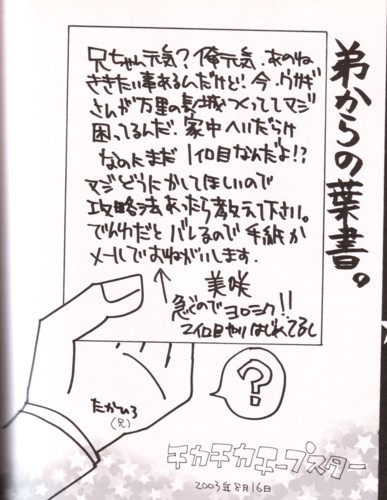 弟からの葉書。
兄ちゃん元気？俺元気．あのね
ききたい事あるんだけど！今．ウサギ
さんが万里の長城つくっててマジ
困ってるんだ．家中へいだらけ
なのにまだ1イロ目なんだよ!?
マジどうにかしてほしいので
攻略法あったら教えて下さい。
でんわだとバレるので手紙か
メールでおねがいします．
美咲
急ぐのでヨロシク!!
2イロ目やりはじめてるし
?
たかひろ
(兄)
チカチカチープスター
2003年8月16日